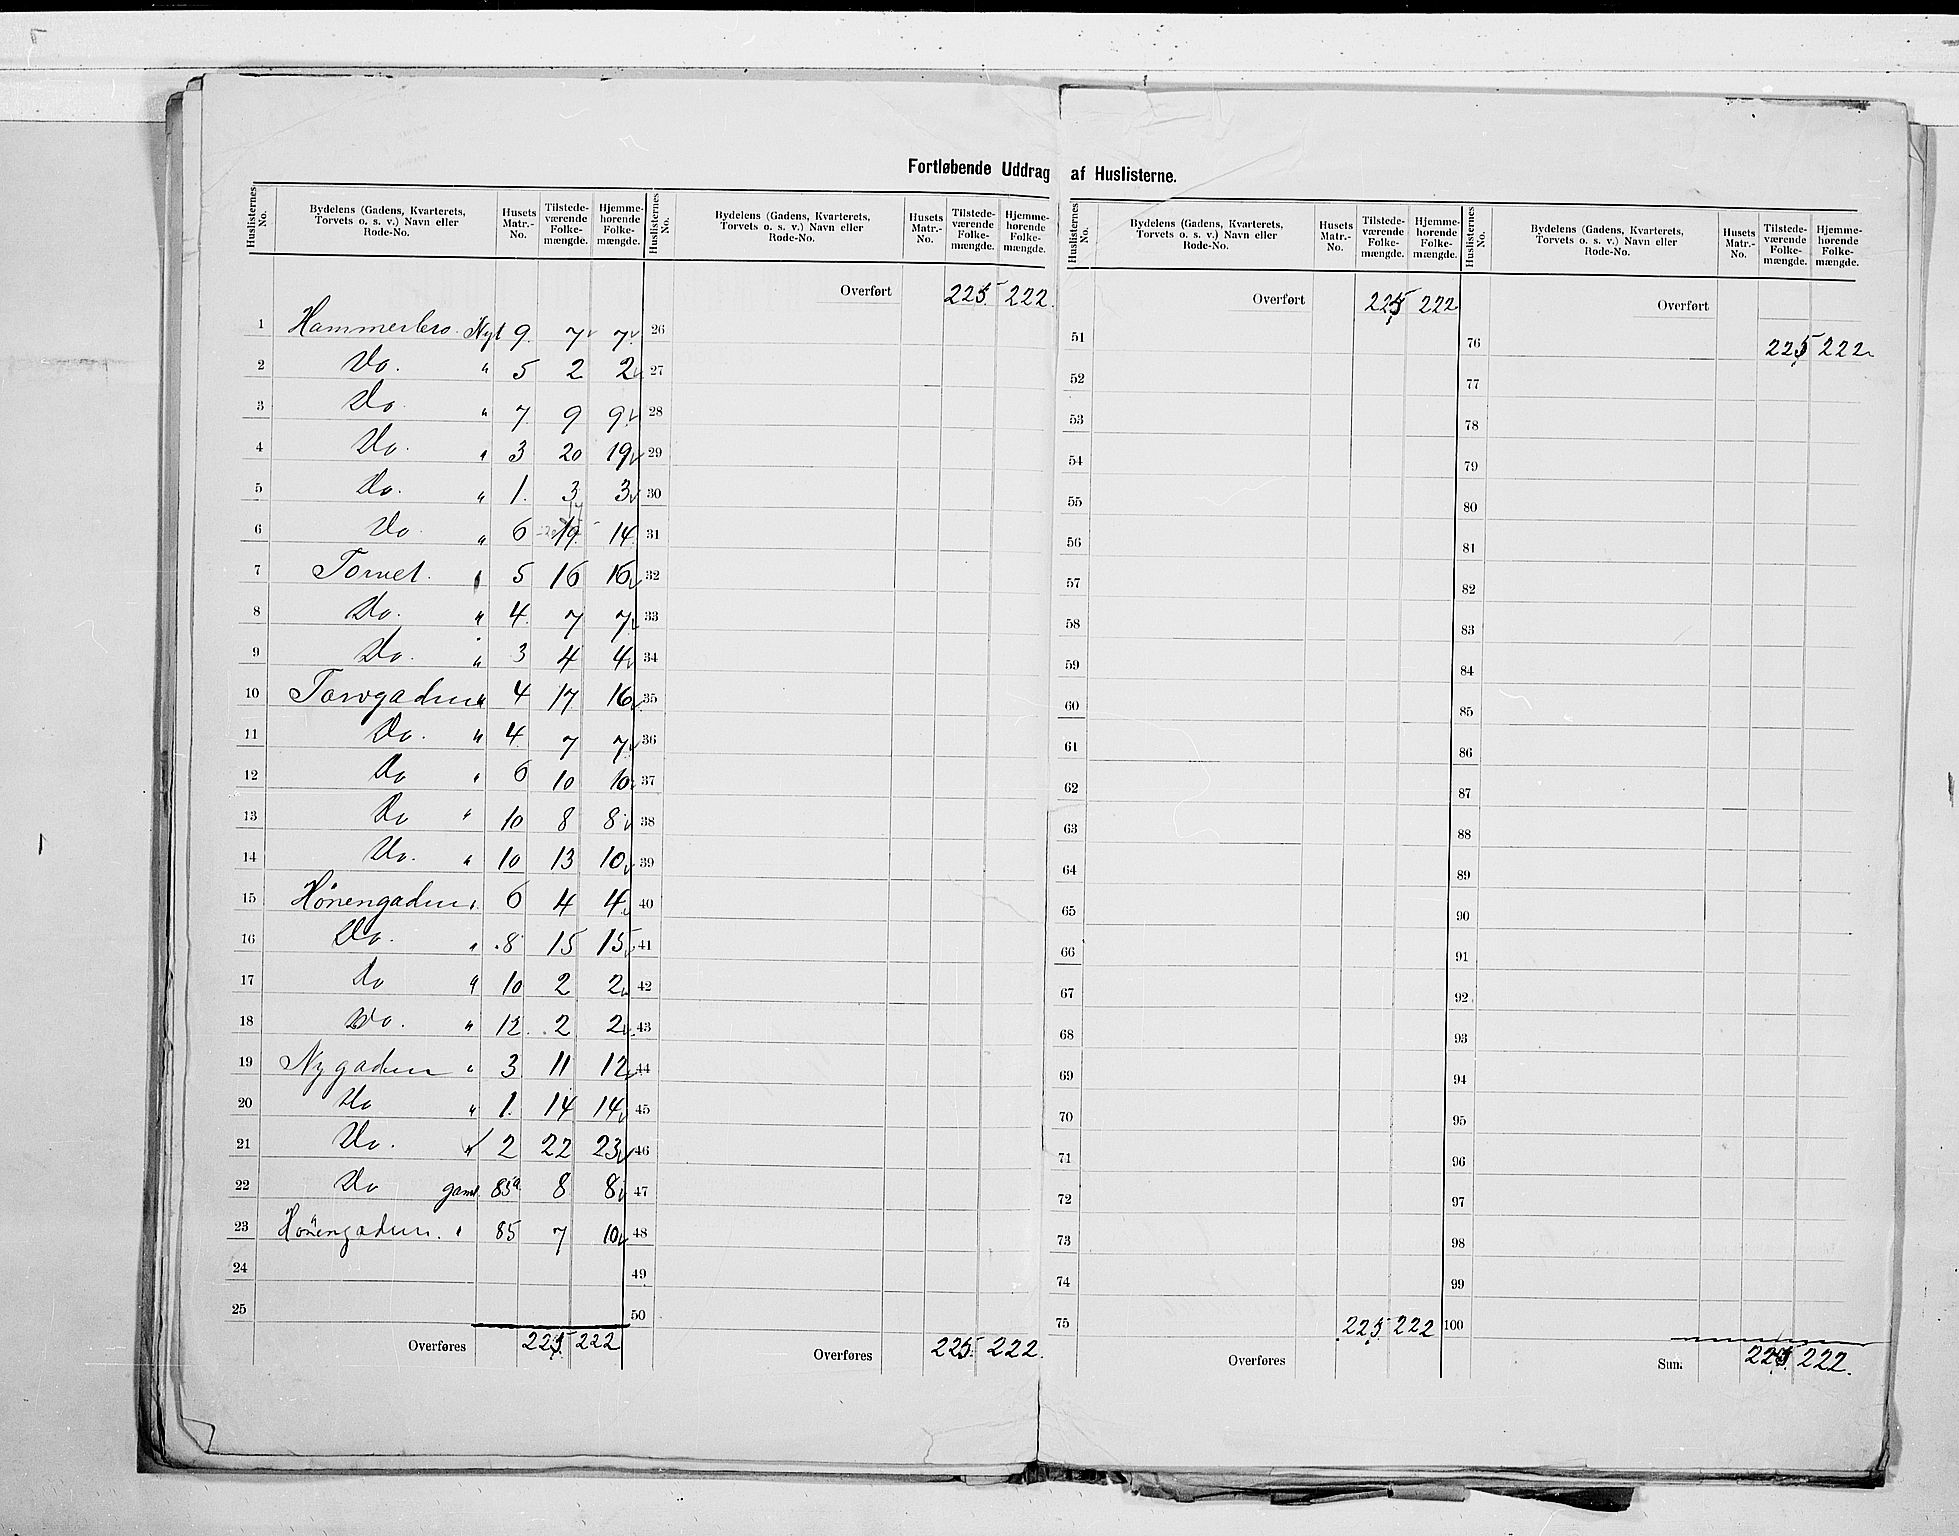 Fortløbende Uddrag af Huslisterne.
Huslisternes No. | Bydelens (Gadens, Kvarterets, Torvets o. s. v.) Navn eller Rode-No. | Husets Matr.-No. | Tilstede-værende Folke-mængde. | Hjemme-hørende Folke-mængde.
Huslisternes No. | Bydelens (Gadens, Kvarterets, Torvets o. s. v.) Navn eller Rode-No. | Husets Matr.-No. | Tilstede-værende Folke-mængde. | Hjemme-hørende Folke-mængde.
Huslisternes No. | Bydelens (Gadens, Kvarterets, Torvets o. s. v.) Navn eller Rode-No. | Husets Matr.-No. | Tilstede-værende Folke-mængde. | Hjemme-hørende Folke-mængde.
Huslisternes No. | Bydelens (Gadens, Kvarterets, Torvets o. s. v.) Navn eller Rode-No. | Husets Matr.-No. | Tilstede-værende Folke-mængde. | Hjemme-hørende Folke-mængde.
1 Hammerbro. Nyt 9. 7 7
2 Do. " 5 2 2
3 Do. " 7 9 9
4 Do. " 3 20 19
5 Do. " 1. 3 3
6 Do. " 6 19 14
7 Torvet. " 5 16 16
8 Do. " 4. 7 7
9 Do. " 3 4 4
10 Torvgaden " 4 17 16
11 Do. " 4. 7 7
12 Do " 6 10 10
13 Do " 10 8 8
14 Do. " 10 13 10
15 Hönengaden " 6 4 4
16 Do. " 8 15 15
17 Do " 10 2 2
18 Do. " 12. 2 2
19 Nygaden " 3 11 12
20 Do " 1. 14 14
21 Do. " 2 22 23
22 Do gaml. 85a 8 8
23 Hönengaden. " 85 7 10
24
25
Overføres 225 222
Overført 225. 222.
26
27
28
29
30
31
32
33
34
35
36
37
38
39
40
41
42
43
44
45
46
47
48
49
50
Overføres 225. 222.
Overført 225 222
51
52
53
54
55
56
57
58
59
60
61
62
63
64
65
66
67
68
69
70
71
72
73
74
75 225 222
Overføres
Overført
76 225 222
77
78
79
80
81
82
83
84
85
86
87
88
89
90
91
92
93
94
95
96
97
98
99
100
Sum. 225. 222.